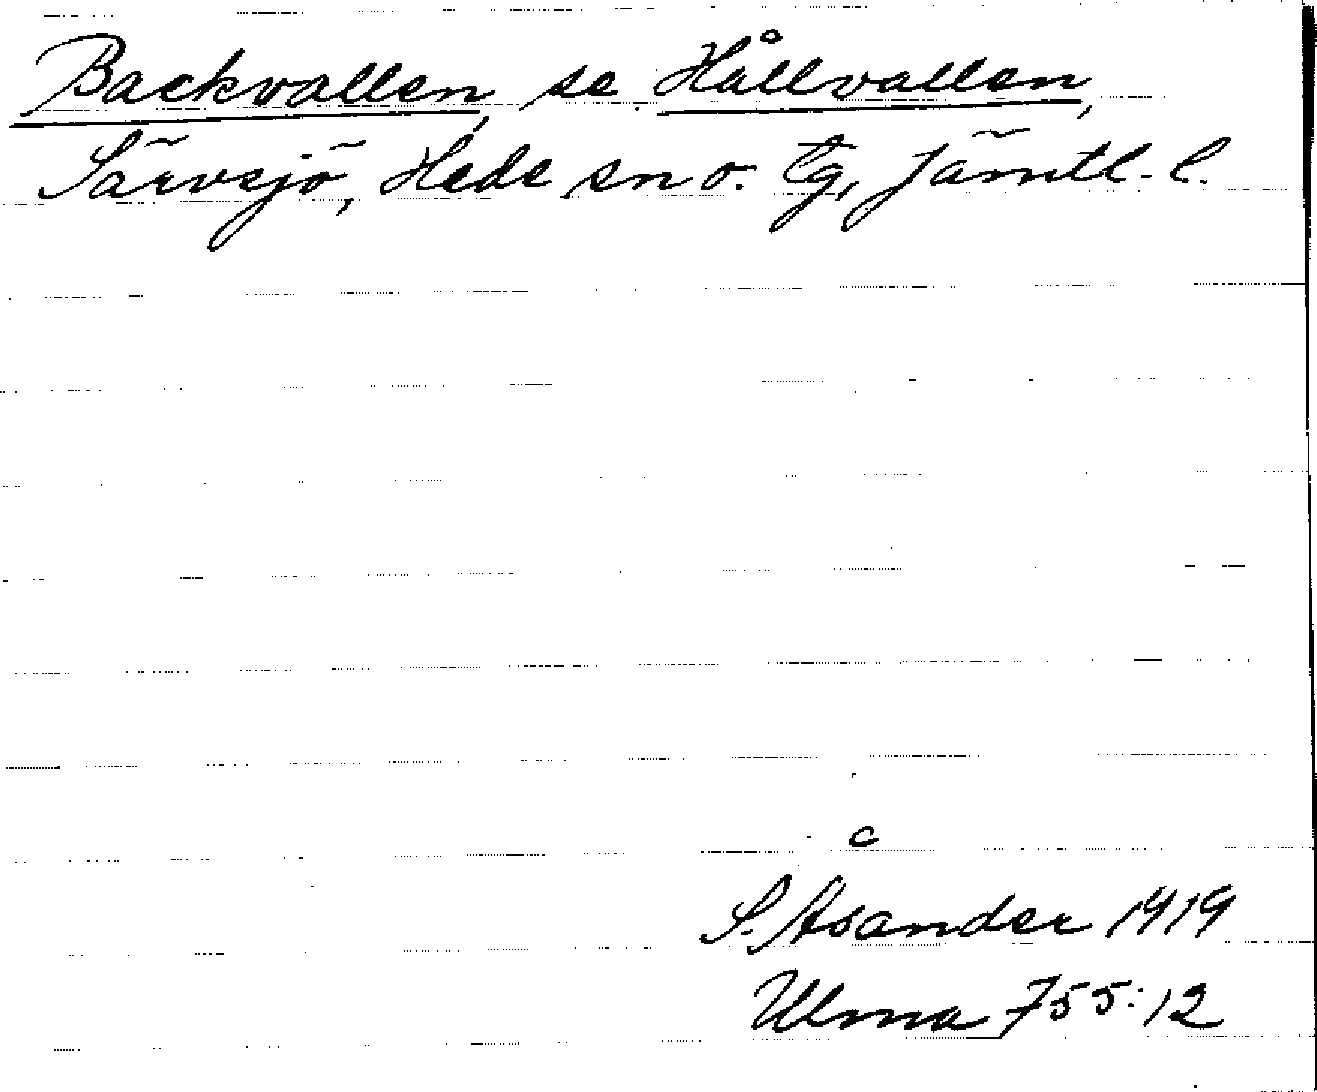 Backvallen, se Hållvallen,
Särvsjö, Hede sn o. tg, Jämtl. l.
S. Åsander 1919
Ulma 755:12